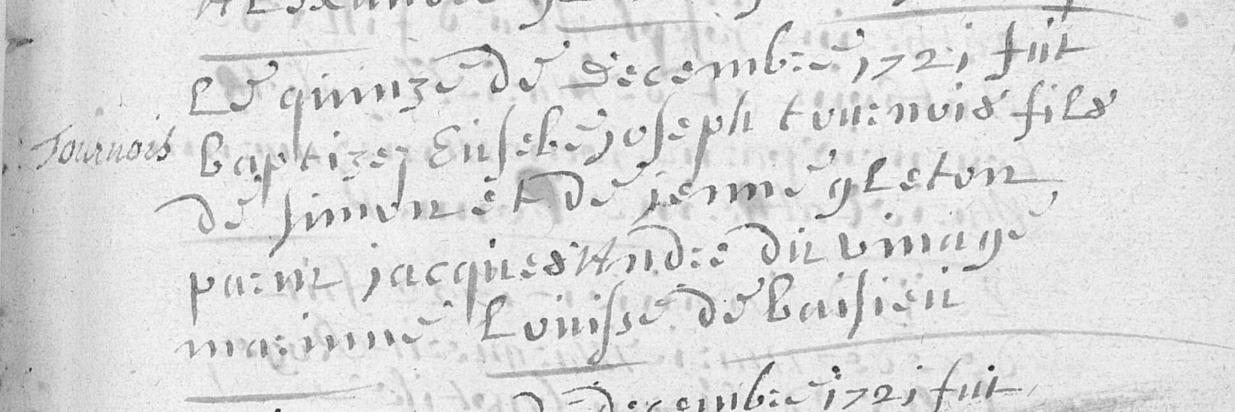 Le quinze de decembre 1721 fut
Tournois
baptizez Eusebe joseph tournois fils
de simon et de jenne gleton
parin jacques Andre du vinage
marinne Lovisse de baisieu
decembre 1721 fut